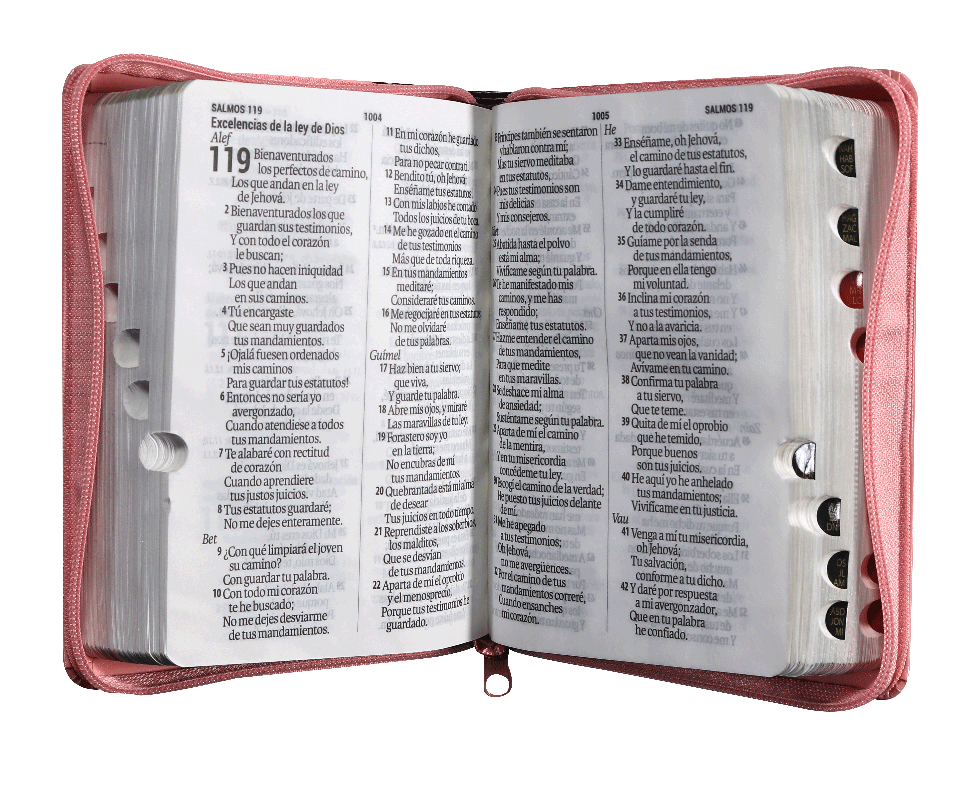 SALMOS 119
1004
Excelencias de la ley de Dios
Alef
119 Bienaventurados
los perfectos de camino,
Los que andan en la ley
de Jehová.
2 Bienaventurados los que
guardan sus testimonios,
Y con todo el corazón
le buscan;
3 Pues no hacen iniquidad
Los que andan
en sus caminos.
4 Tú encargaste
Que sean muy guardados
tus mandamientos.
5 ¡Ojalá fuesen ordenados
mis caminos
Para guardar tus estatutos!
6 Entonces no sería yo
avergonzado,
Cuando atendiese a todos
tus mandamientos.
7 Te alabaré con rectitud
de corazón
Cuando aprendiere
tus justos juicios.
8 Tus estatutos guardaré;
No me dejes enteramente.
Bet
9 ¿Con qué limpiará el joven
su camino?
Con guardar tu palabra.
10 Con todo mi corazón
te he buscado;
No me dejes desviarme
de tus mandamientos.
11 En mi corazón he guardado
tus dichos,
Para no pecar contra ti.
12 Bendito tú, oh Jehová;
Enséñame tus estatutos.
13 Con mis labios he contado
Todos los juicios de tu boca.
14 Me he gozado en el camino
de tus testimonios
Más que de toda riqueza.
15 En tus mandamientos
meditaré;
Consideraré tus caminos.
16 Me regocijaré en tus estatutos;
No me olvidaré
de tus palabras.
Guímel
17 Haz bien a tu siervo;
que viva,
Y guarde tu palabra.
18 Abre mis ojos, y miraré
Las maravillas de tu ley.
19 Forastero soy yo
en la tierra;
No encubras de mí
tus mandamientos.
20 Quebrantada está mi alma
de desear
Tus juicios en todo tiempo.
21 Reprendiste a los soberbios,
los malditos,
Que se desvían
de tus mandamientos.
22 Aparta de mí el oprobio
y el menosprecio,
Porque tus testimonios he
guardado.
1005
SALMOS 119
Príncipes también se sentaron
y hablaron contra mí;
Mas tu siervo meditaba
en tus estatutos,
Pues tus testimonios son
mis delicias
Y mis consejeros.
Abatida hasta el polvo
está mi alma;
Vivifícame según tu palabra.
Te he manifestado mis
caminos, y me has
respondido;
Enséñame tus estatutos.
Hazme entender el camino
de tus mandamientos,
Para que medite
en tus maravillas.
Se deshace mi alma
de ansiedad;
Susténtame según tu palabra.
Aparta de mí el camino
de la mentira,
Y en tu misericordia
concédeme tu ley.
Escogí el camino de la verdad;
He puesto tus juicios delante
de mí.
Me he apegado
a tus testimonios;
Oh Jehová,
no me avergüences.
Por el camino de tus
mandamientos correré,
Cuando ensanches
mi corazón.
He
33 Enséñame, oh Jehová,
el camino de tus estatutos,
Y lo guardaré hasta el fin.
34 Dame entendimiento,
y guardaré tu ley,
Y la cumpliré
de todo corazón.
35 Guíame por la senda
de tus mandamientos,
Porque en ella tengo
mi voluntad.
36 Inclina mi corazón
a tus testimonios,
Y no a la avaricia.
37 Aparta mis ojos,
que no vean la vanidad;
Avívame en tu camino.
38 Confirma tu palabra
a tu siervo,
Que te teme.
39 Quita de mí el oprobio
que he temido,
Porque buenos
son tus juicios.
40 He aquí yo he anhelado
tus mandamientos;
Vivifícame en tu justicia.
Vau
41 Venga a mí tu misericordia,
oh Jehová;
Tu salvación,
conforme a tu dicho.
42 Y daré por respuesta
a mi avergonzador,
Que en tu palabra
he confiado.
HAB
SOF
ZAC
MAL
ABD
JON
MI